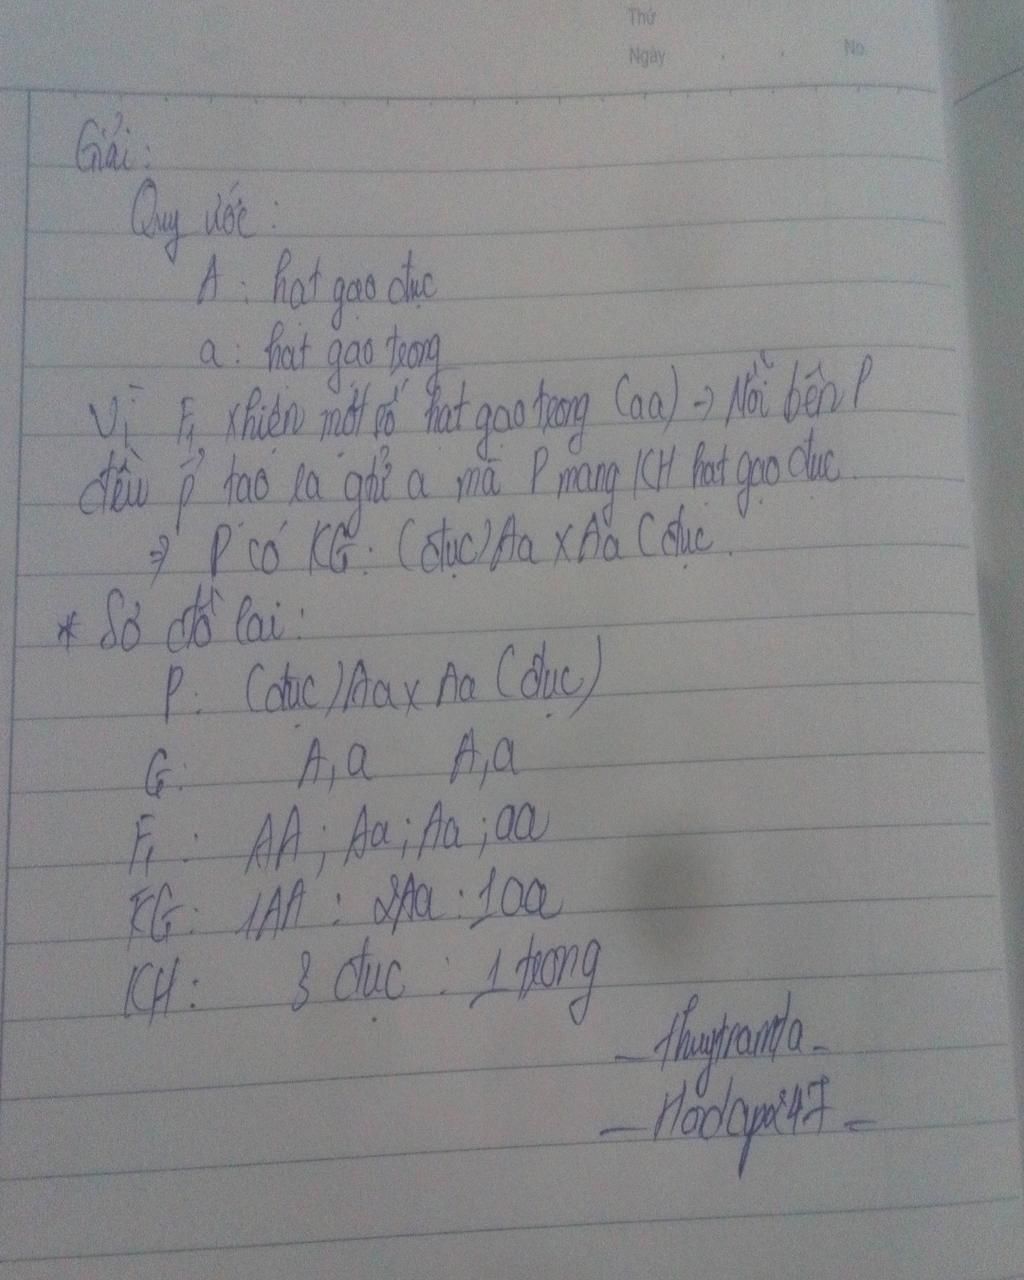 Thứ
Ngày . . No
Giải:
Quy ước:
A: hạt gạo đục
a: hạt gạo trong
Vì F₁ xhiện một số hạt gạo trong (aa) → Mỗi bên P
đều p' tạo ra gtử a mà P mang KH hạt gạo đục
⇒ P có KG: (đục) Aa x Aa (đục.
* Sơ đồ lai:
P: (đục) Aa x Aa (đục)
G: A,a A,a
F₁: AA; Aa; Aa; aa
KG: 1AA : 2Aa : 1aa
KH: 3 đục : 1 trong